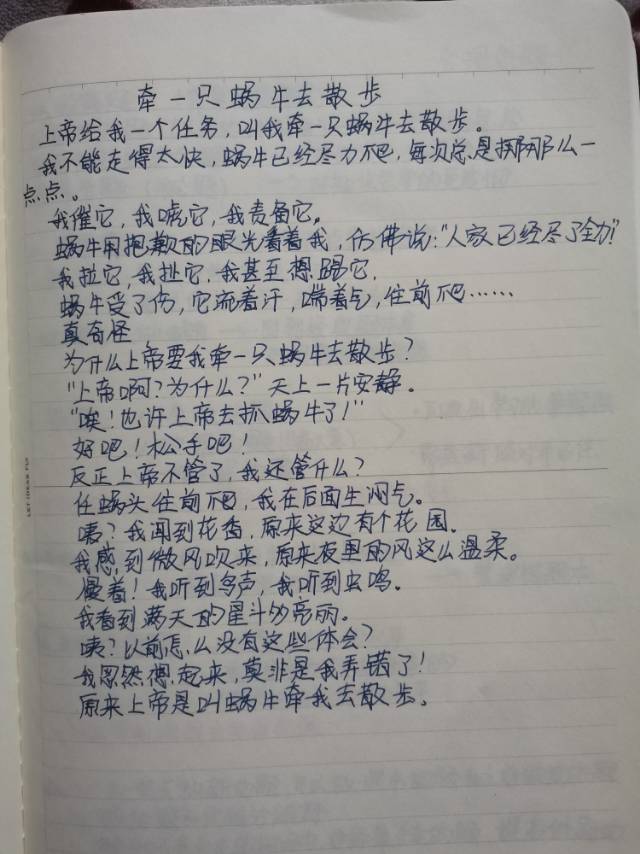 牵一只蜗牛去散步
上帝给我一个任务，叫我牵一只蜗牛去散步。
我不能走得太快，蜗牛已经尽力爬，每次总是挪那么一
点点。
我催它，我唬它，我责备它。
蜗牛用抱歉的眼光看着我，仿佛说："人家已经尽了全力！"
我拉它，我扯它，我甚至想踢它，
蜗牛受了伤，它流着汗，喘着气，往前爬……
真奇怪
为什么上帝要我牵一只蜗牛去散步？
"上帝啊？为什么？"天上一片安静。
"唉！也许上帝去抓蜗牛了！"
好吧！松手吧！
反正上帝不管了，我还管什么？
任蜗头往前爬，我在后面生闷气。
咦？我闻到花香，原来这边有个花园。
我感到微风吹来，原来夜里的风这么温柔。
慢着！我听到鸟声，我听到虫鸣。
我看到满天的星斗多亮丽。
咦？以前怎么没有这些体会？
我忽然想起来，莫非是我弄错了！
原来上帝是叫蜗牛牵我去散步。